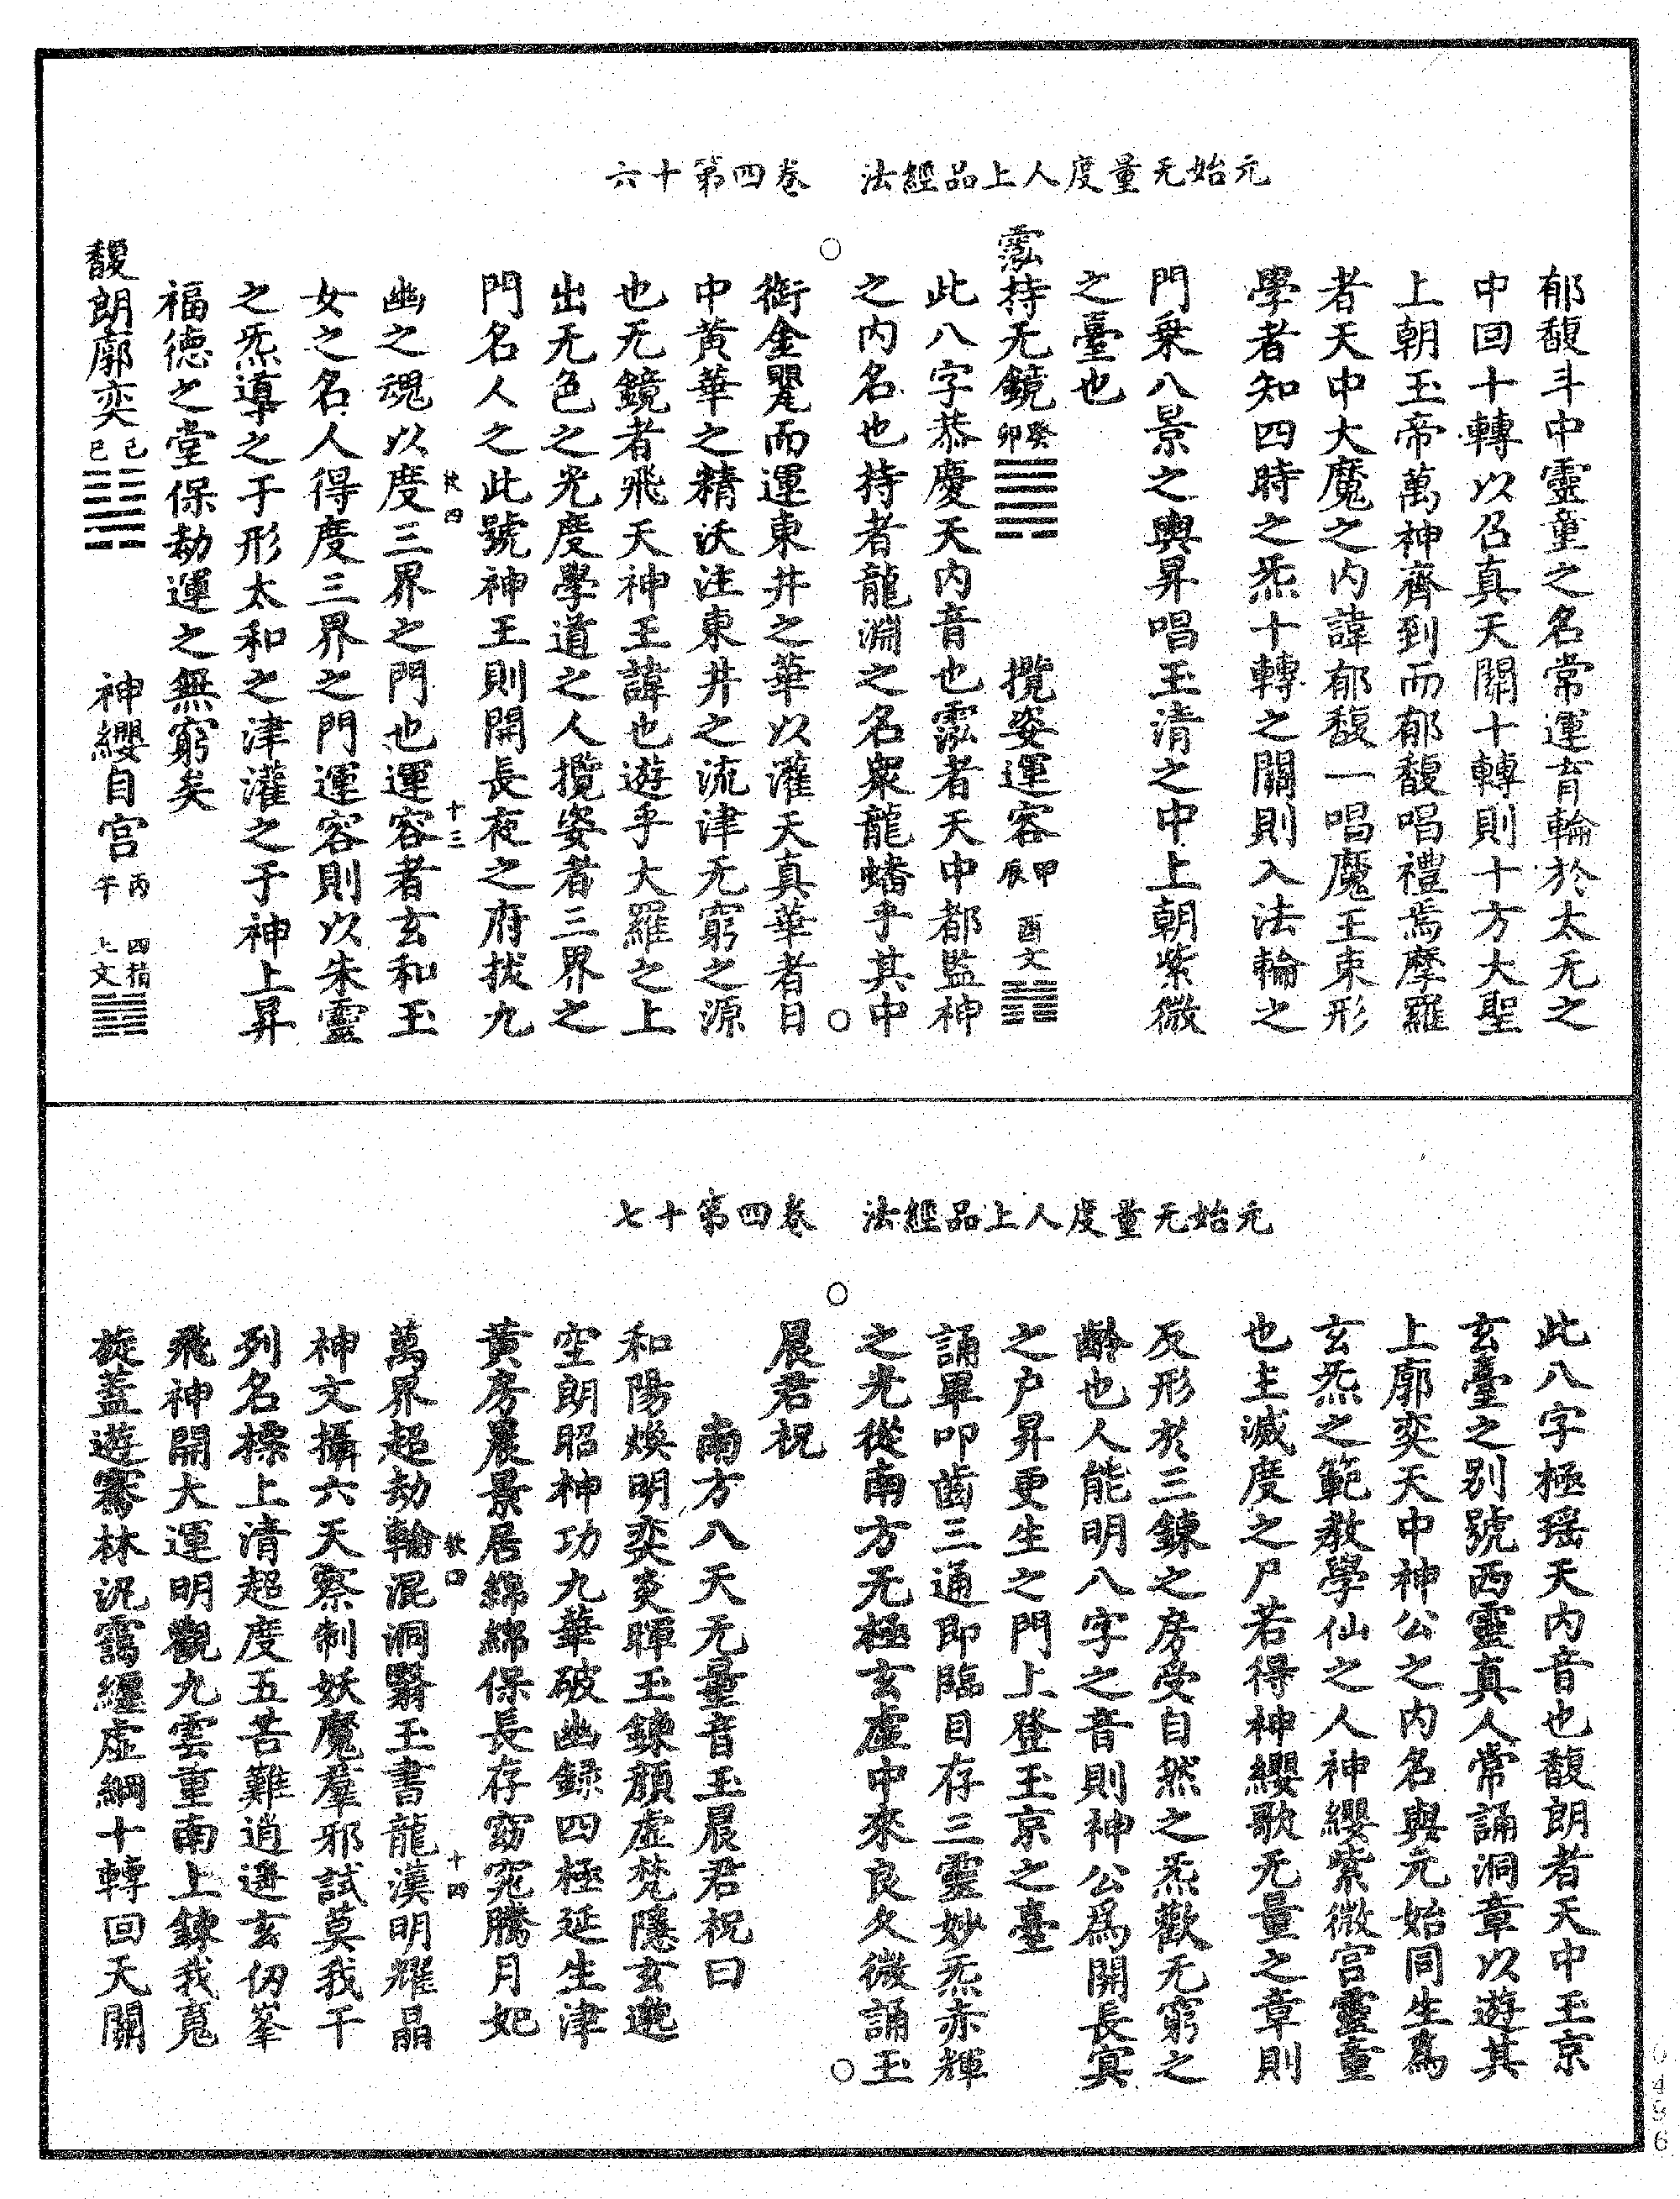 元始无量度人上品經法　卷四第十六
郁馥斗中靈童之名常運育輪於太无之
中回十轉以召真天關十轉則十方大聖
上朝玉帝萬神齊到而郁馥唱禮焉摩羅
者天中大魔之內諱郁馥一唱魔王束形
學者知四時之炁十轉之關則入法輪之
門乗八景之輿昇唱玉清之中上朝紫微
之臺也
霐持无鏡 癸卯 攬姿運容 甲辰 酉文
此八字恭慶天內音也霐者天中都監神
之內名也持者龍淵之名衆龍蟠乎其中
銜金翣而運東井之華以灌天真華者日
中黃華之精沃注東井之流津无窮之源
也无鏡者飛天神王諱也遊乎大羅之上
出无色之光度學道之人攬姿者三界之
門名人之此號神王則開長夜之府拔九
幽之魂以度三界之門也運容者玄和玉
女之名人得度三界之門運容則以朱靈
之炁導之于形太和之津灌之于神上昇
福德之堂保劫運之無窮矣
馥朗廓奕 己巳 神纓自宫 丙午 四精上文
四 十三
元始无量度人上品經法　卷四第十七
此八字極瑶天內音也馥朗者天中玉京
玄臺之别號西靈真人常誦洞章以遊其
上廓奕天中神公之內名與元始同生爲
玄炁之範教學仙之人神纓紫微宫靈童
也主滅度之尸若得神纓歌无量之章則
反形於三鍊之房受自然之炁歡无窮之
齡也人能明八字之音則神公爲開長㝠
之户昇更生之門上登玉京之臺
誦畢叩齒三通即臨目存三靈妙炁赤輝
之光從南方无極玄虚中來良久微誦玉
晨君祝
南方八天无量音玉晨君祝曰
和陽煥明奕炎暉玉鍊顔虚梵隱玄邈
空朗昭神功九華破幽録四極延生津
黃房晨景居綿綿保長存窈窕騰月妃
萬界超劫輪混洞翳玉書龍漢明耀晶
神文攝六天察制妖魔羣邪試莫我干
列名標上清超度五苦難逍遥玄仞峯
飛神開大運明觀九雲重南上鍊我䰟
旋蓋遊騫林泥靄纏虚綱十轉回天關
四 十四
0496